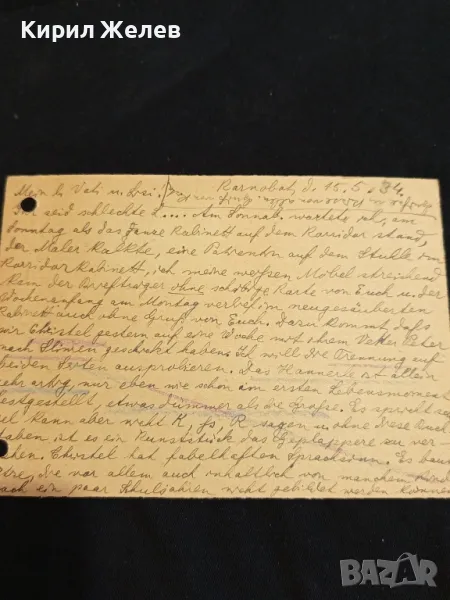 Кирил Желев
Mein l. Vati u. Lexi! Karnobat, d. 15.5.34.
Ihr seid schlechte K.... Am Sonnab. wartete ich, am
Sonntag als das ganze Kabinett auf dem Korridor stand,
der Maler kalkte, eine Patientin auf dem Stuhle im
Korridorkabinett, ich meine weissen Möbel streichend
kam der Briefträger ohne schöne Karte von Euch u. der
Wochenanfang am Montag verlief im neugesäuberten
Kabinett auch ohne Gruss von Euch. Dazu kommt, dass
wir Christel gestern auf eine Woche mit ihrem Vetter Peter
nach Sliwen geschickt haben. Ich will die Trennung auf
beiden Seiten ausprobieren. Das Hannerle ist allein
sehr artig, nur eben wie schon am ersten Lebensmoment
festgestellt, etwas dümmer als die Grosse. Es spricht
kann aber nicht K, G, R sagen u. ohne diese Buch-
staben ist es ein Kunststück das Geplappere zu ver-
stehen. Christel hat fabelhaften Sprachsinn. Es
die vor allem auch inhaltlich von manchem Kind
nach ein paar Schuljahren nicht gebildet werden können
BAZAR